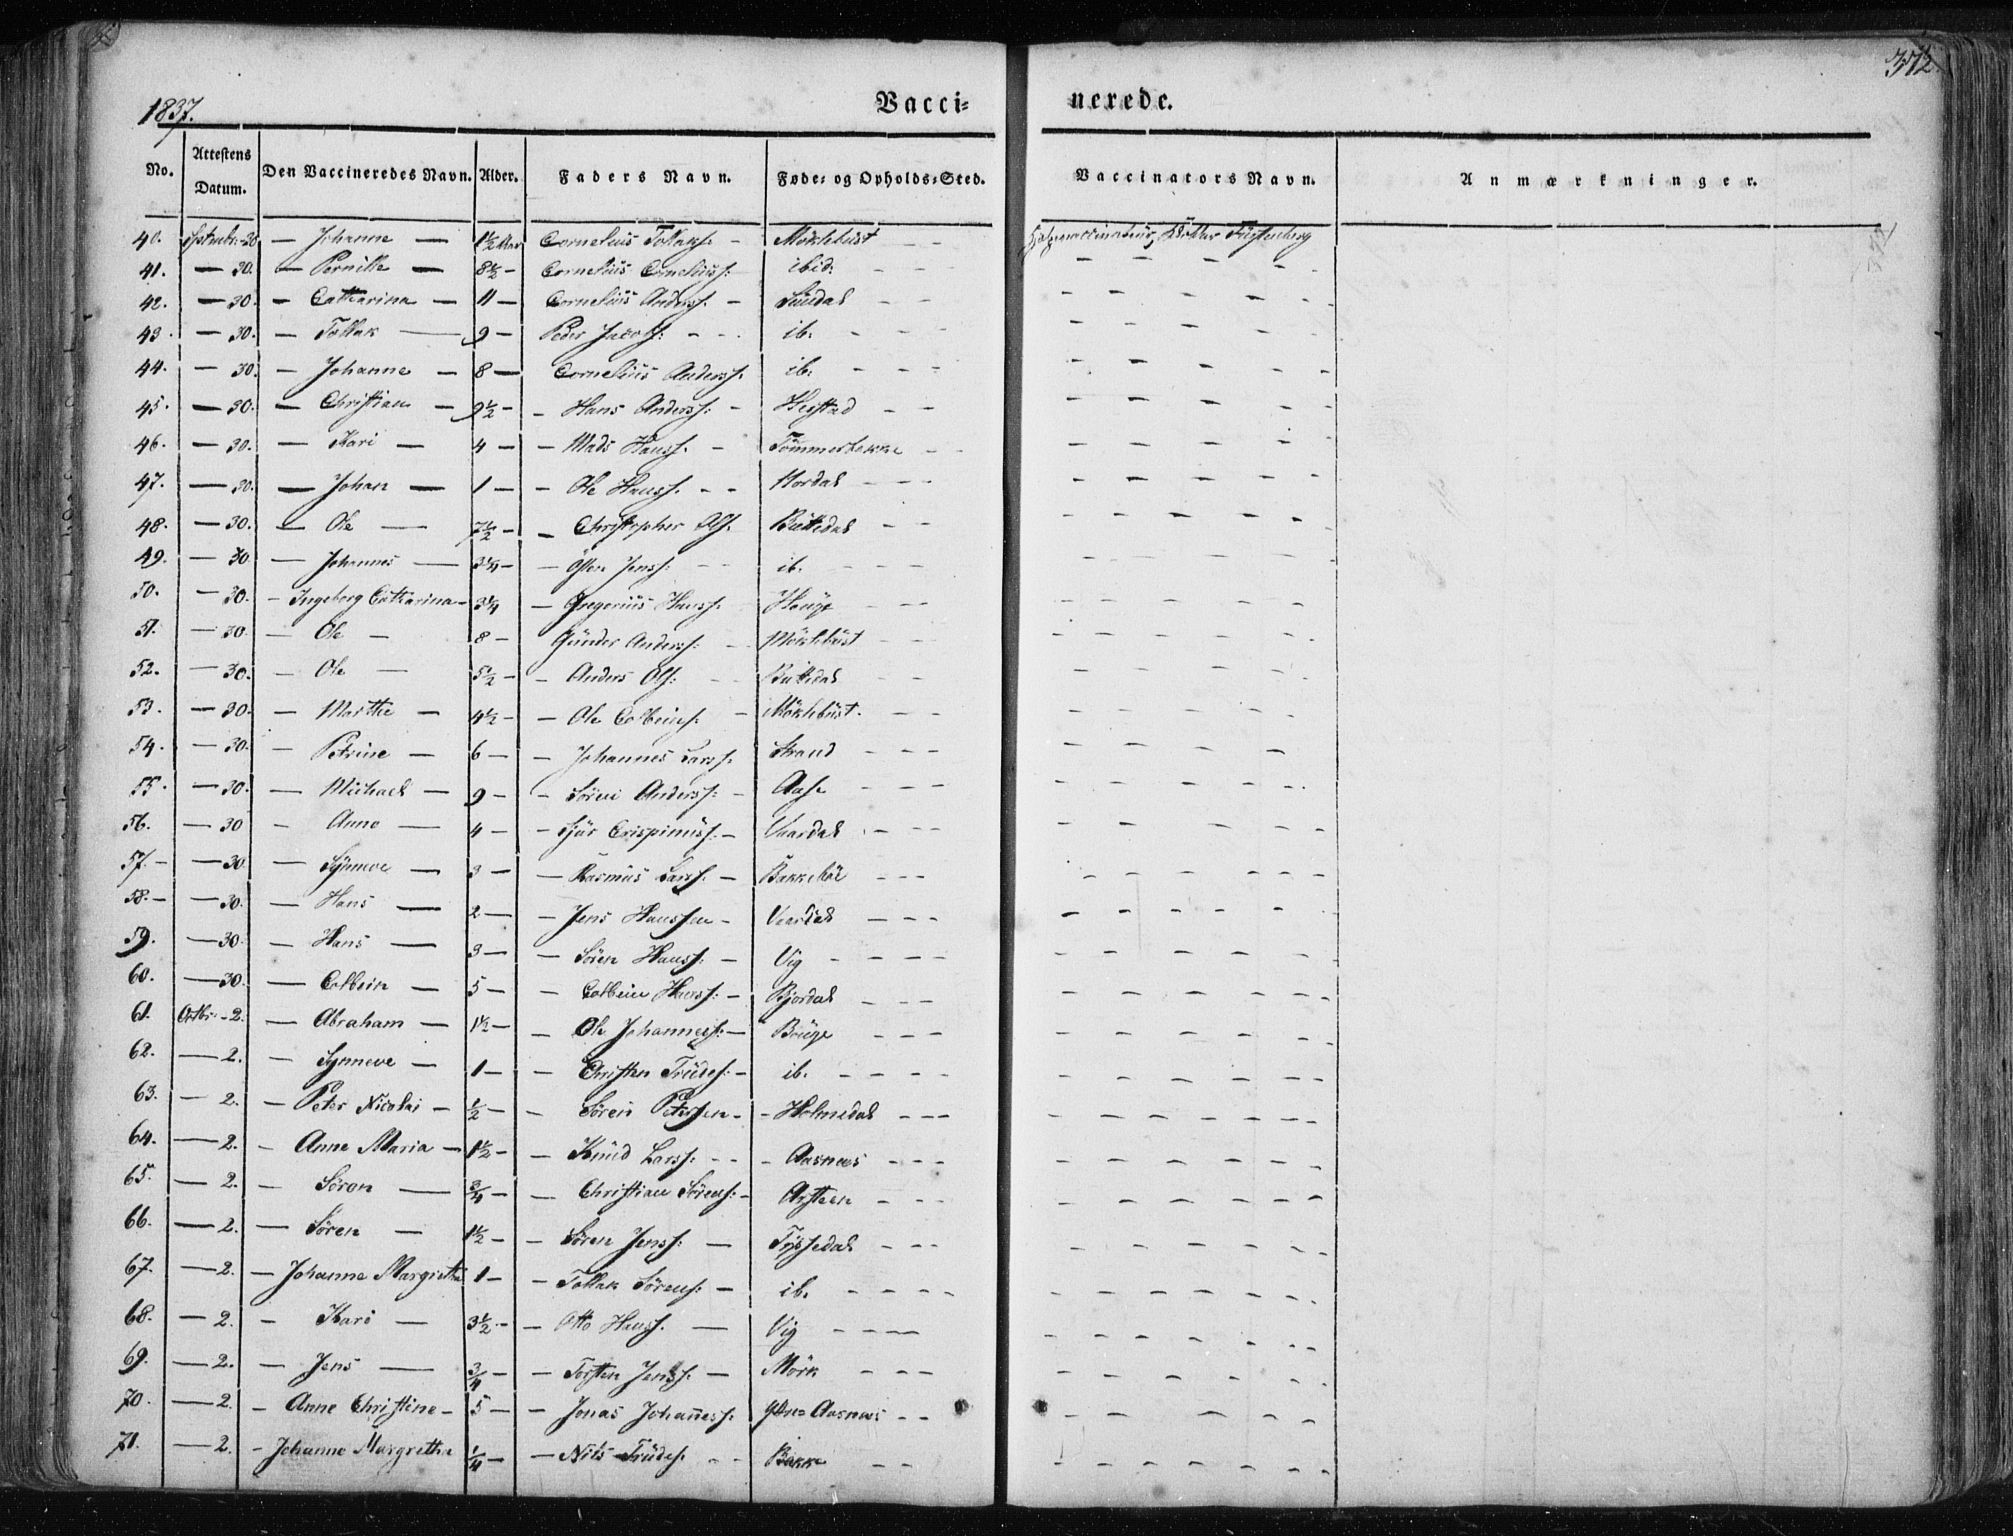 372.
1837.
Vacci= nerede.
No. Attestens Datum. Den Vaccineredes Navn. Alder. Faders Navn. Føde= og Opholds=Sted. Vaccinators Navn. Anmærkninger.
40. Septembr.-30 — Johanne — 1½ Aar Cornelius Tollaks: - Möklebust - -
41. — 30. — Pernille — 8½ — Cornelius Corneliuss: ibid: - - -
42. — 30. — Catharina — 11 — Cornelius Anderss: - Sundal - -
43. — 30. — Tollak — 9 — Peder Jacobs: - - - ib. - - -
44. — 30. — Johanne — 8 — Cornelius Anderss: ib: - - -
45. — 30. — Christian — 9½ — - Hans Anderss: - Hestad - -
46. — 30. — Kari — 4 — - Mads Hanss. - Tömmerbekke - -
47. — 30. — Johan — 1 — - Ole Hanss. - - Nordal - - -
48. — 30. — Ole — 7½ — Christopher Ols. - -
49. — 30 — Johannes — 3¼ — - Östen Jenss: - - ib. - - -
50. — 30. - Ingeborg Catharina - 3¼ — Gregorius Hanss. Hauge - - -
51. — 30. — Ole — 8 — Gunder Anderss: - Möklebust - -
52. — 30. — Ole — 5½ — - Anders Ols: - - - -
53. — 30. — Marthe — 4½ — - Ole Colbeins. - Möklebust. - - -
54. — 30. — Petrine — 6 — - Johannes Larss. Strand - - -
55. — 30. — Michael — 9 — - Sören Anderss: - Aase - - -
56. — 30 - Anne — 4 — - Sjur Crispinuss. - Vaardal - - -
57. — 30. — Synneve — 3 — - Rasmus Larss. - Bakkeböe - - -
58. — 30. — Hans — 2 — - Jens Hanssen - Vaardal - - -
59. — 30. — Hans — 3 — - Sören Hanss: - Vig - - - -
60. — 30. — Colbein — 5 — - Colbein Hanss: - Bjordal - - -
61. Octbr. - 2. — Abraham — 1½ — - Ole Johanness: - - - -
62. — 2. — Synneve — 1 — - Christen Trudes: - ib. - - - -
63. — 2. — Peter Nicolai - ½ — - Sören Petersen - - Holmedal - - -
64. — 2. — Anne Maria - 1½ — - Knud Larss: - - - Aasnæs - - -
65. — 2. — Sören — ¾ — - Christian Sörens: - - - -
66. — 2. — Sören — 1½ — - Sören Jenss: - Tyssedal - - -
67. — 2. — Johanne Margretha 1 — - Tollak Sörens: - ib. - - - -
68. — 2. — Kari — 3½ — - Otto Hanss. - Vig - - - -
69. — 2. — Jens — ¾ — - Torsten Jenss: - Mörk - - -
70. — 2. — Anne Christine - 5 — - Jonas Johaness: Aasnæs - -
71. — 2. - Johanne Margretha ¼ — - Nils Trudes. - - Bakke - -